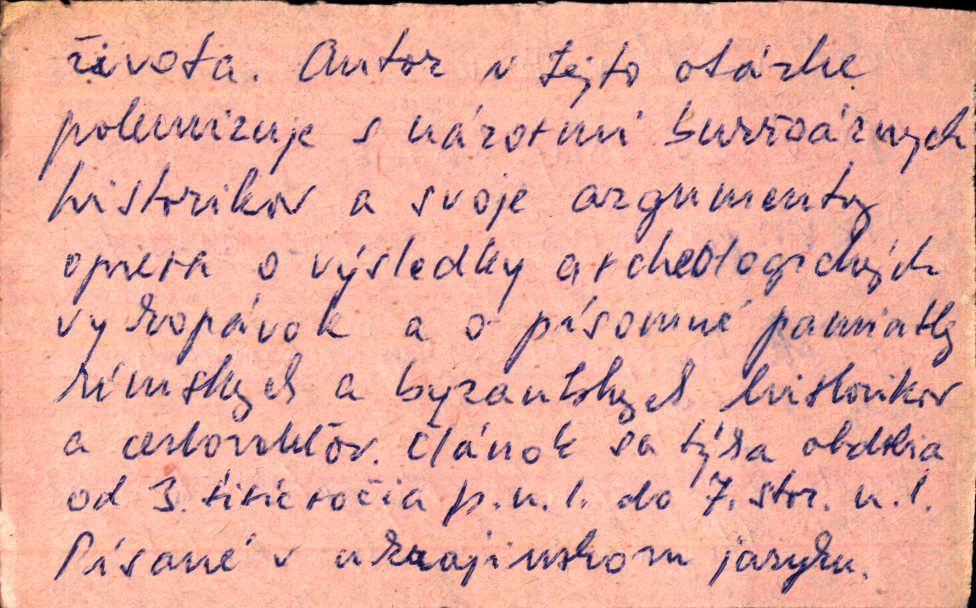 života. Autor v tejto otázke
polemizuje s názormi buržoáznych
historikov a svoje argumenty
opiera o výsledky archeologických
vykopávok a o písomné pamiatky
rímskych a byzantských historikov
a cestovateľov. Článok sa týka obdobia
od 3. tisícročia p.n.l. do 7. stor. n.l.
Písané v ukrajinskom jazyku.